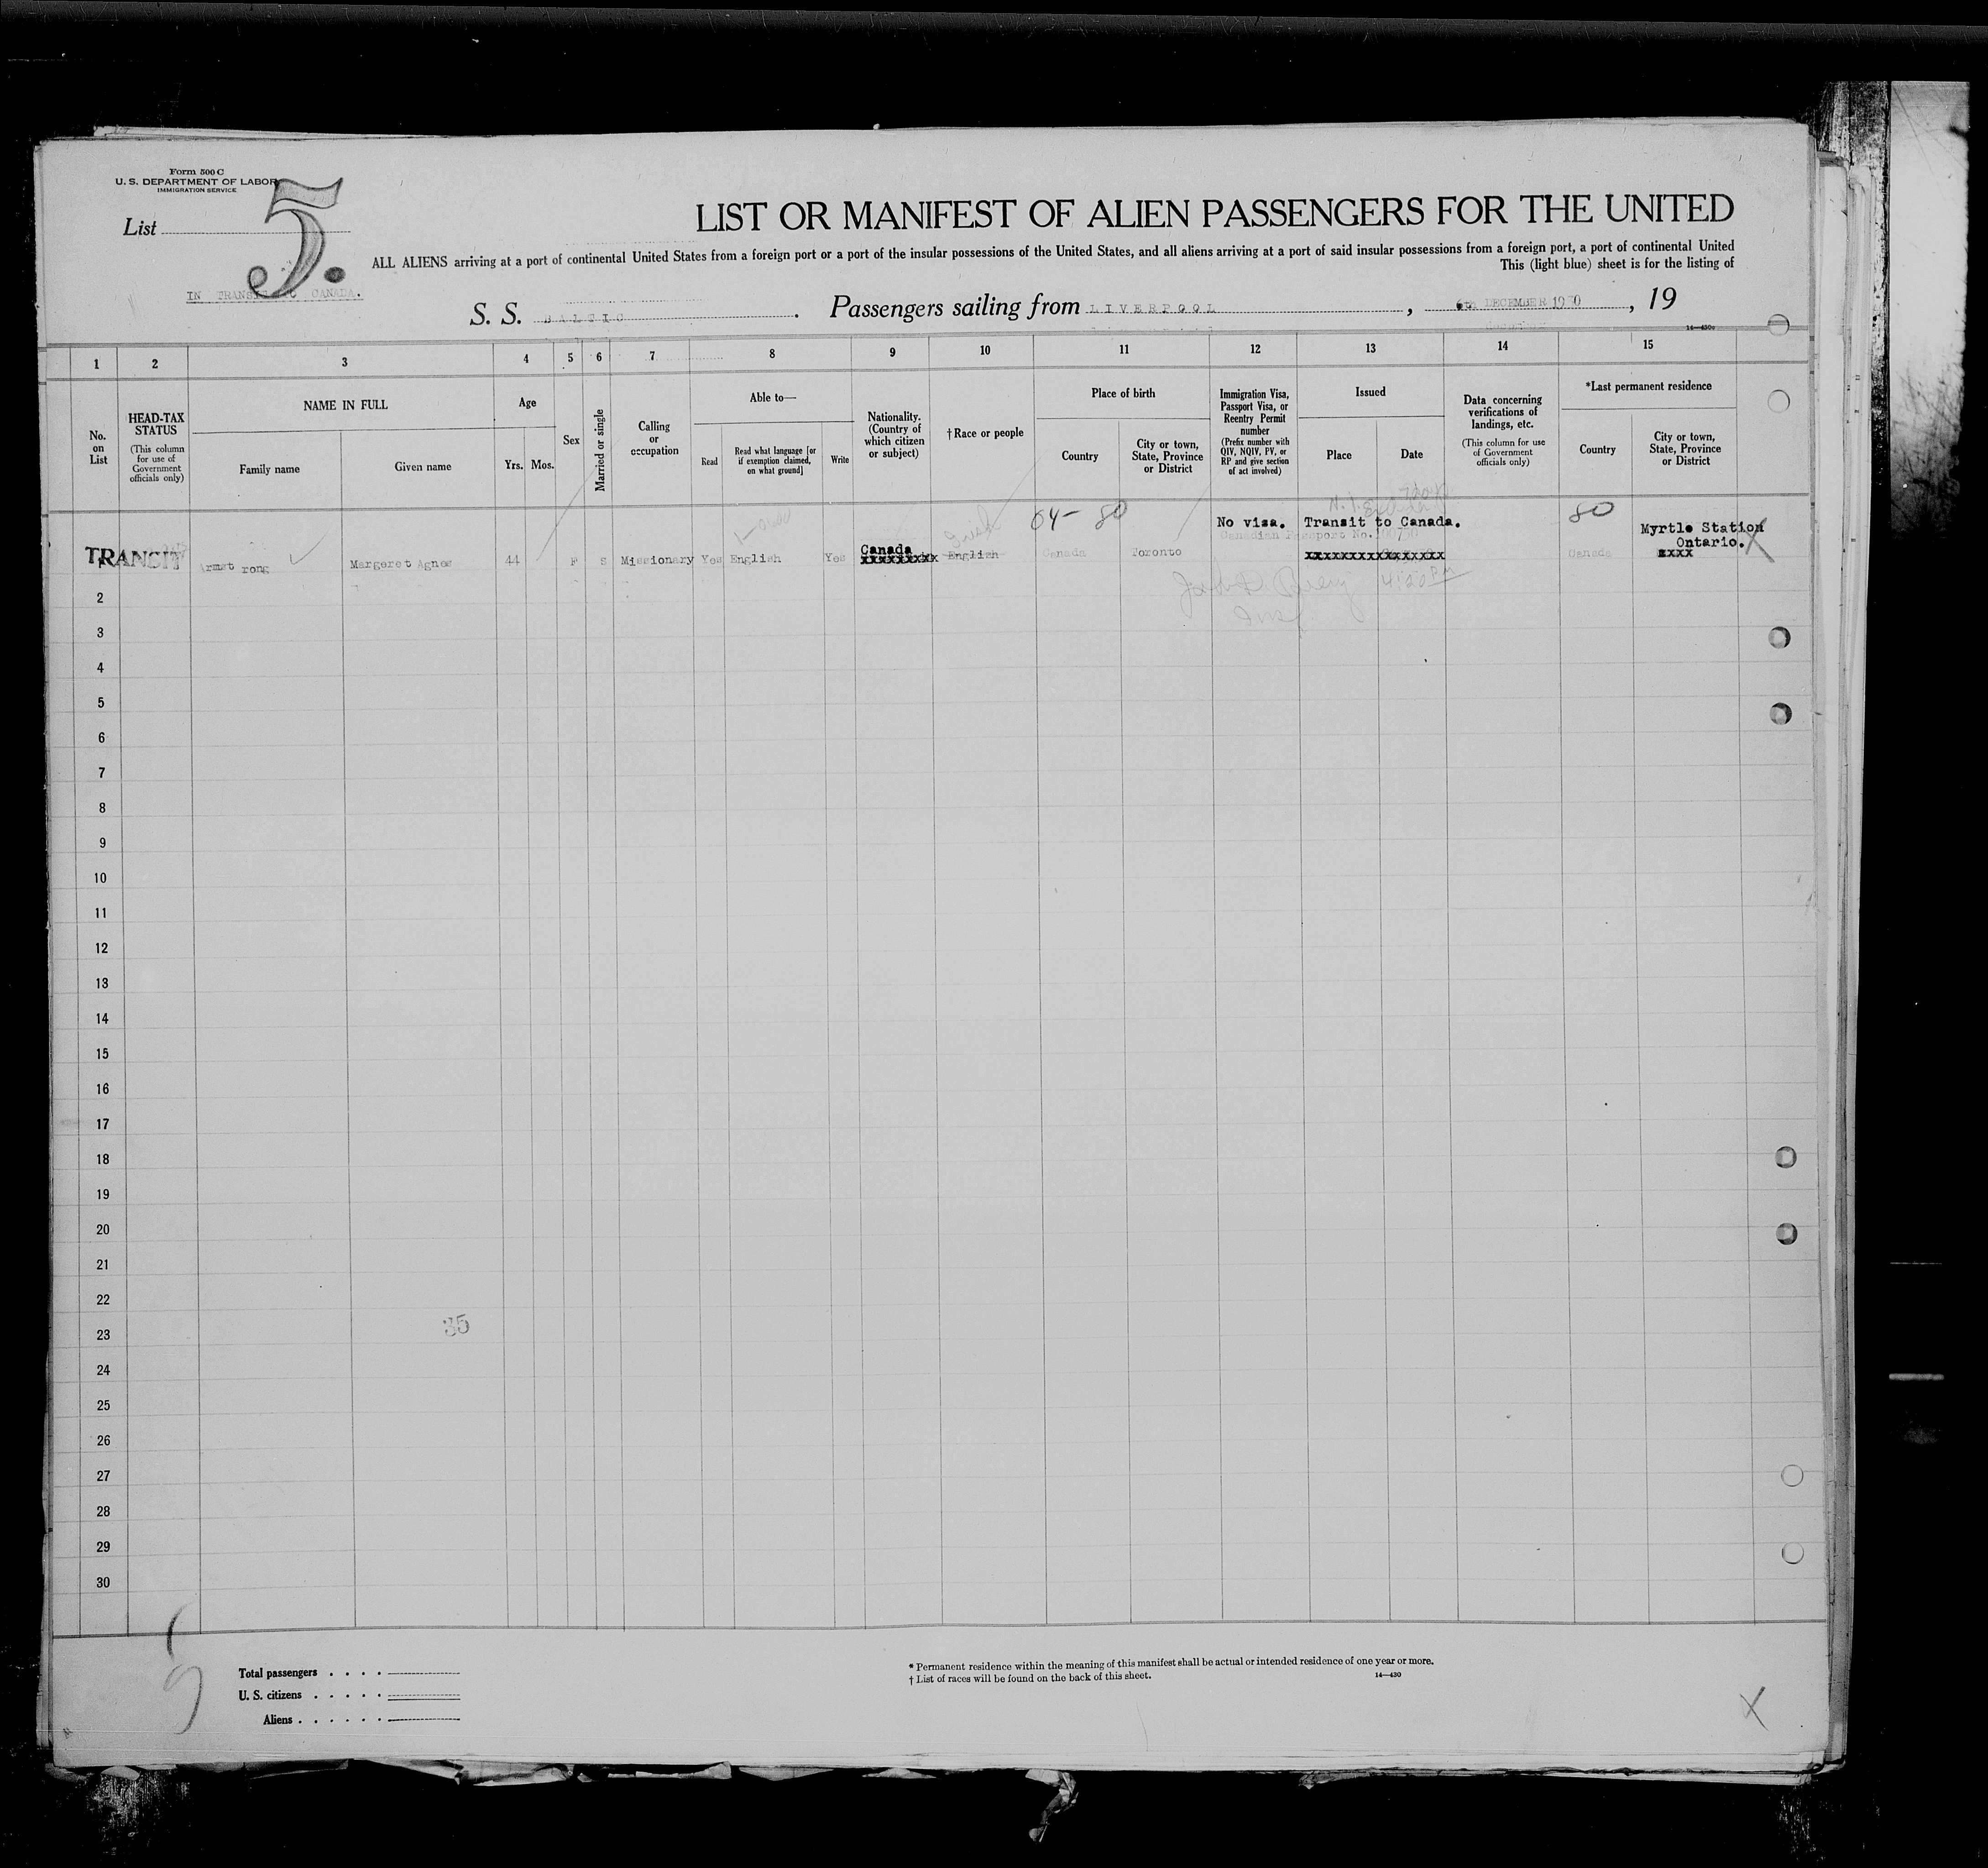 Form 500 C
U. S. DEPARTMENT OF LABOR
IMMIGRATION SERVICE
List 5.
LIST OR MANIFEST OF ALIEN PASSENGERS FOR THE UNITED
ALL ALIENS arriving at a port of continental United States from a foreign port or a port of the insular possessions of the United States, and all aliens arriving at a port of said insular possessions from a foreign port, a port of continental United
This (light blue) sheet is for the listing of
IN TRANSIT TO CANADA.
S. S. BALTIC. Passengers sailing from LIVERPOOL, 6th DECEMBER 1930, 19
14—430c
1 2 3 4 5 6 7 8 9 10 11 12 13 14 15
No. on List
HEAD-TAX STATUS
(This column for use of Government officials only)
NAME IN FULL
Family name
Given name
Age
Yrs. Mos.
Sex
Married or single
Calling or occupation
Able to—
Read
Read what language [or if exemption claimed, on what ground]
Write
Nationality. (Country of which citizen or subject)
†Race or people
Place of birth
Country
City or town, State, Province or District
Immigration Visa, Passport Visa, or Reentry Permit number
(Prefix number with QIV, NQIV, PV, or RP and give section of act involved)
Issued
Place
Date
Data concerning verifications of landings, etc.
(This column for use of Government officials only)
*Last permanent residence
Country
City or town, State, Province or District
04- 80
80
No visa. Transit to Canada.
Myrtle Station
Canadian Passport No.
Ontario. X
TRANSIT Armstrong Margaret Agnes 44 F S Missionary Yes English Yes Canada xxxxxxxxx English Irish Canada Toronto xxxxxxxxxxxxxxxxxx Canada xxxx
4:20 PM
Insp.
2
3
4
5
6
7
8
9
10
11
12
13
14
15
16
17
18
19
20
21
22
23
35
24
25
26
27
28
29
30
Total passengers . . . .
U. S. citizens . . . . .
Aliens . . . . . .
* Permanent residence within the meaning of this manifest shall be actual or intended residence of one year or more.
† List of races will be found on the back of this sheet.
14—430
X